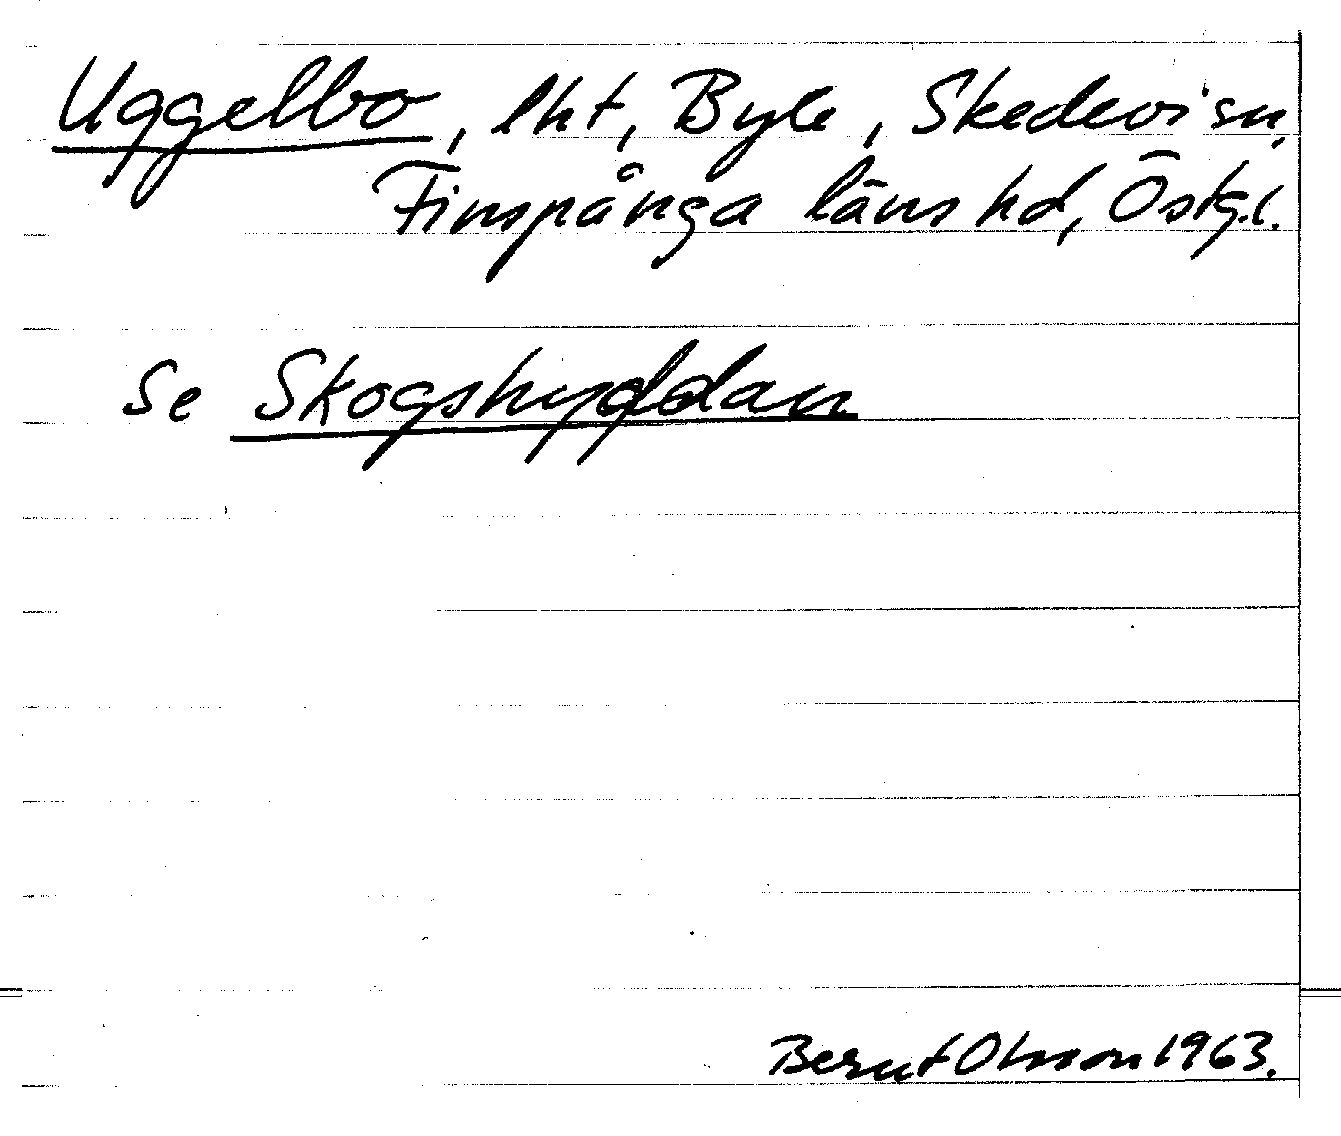 Uggelbo, lht, Byle, Skedevi sn,
Finspånga läns hd, Östg.l.
Se Skogshyddan
Bernt Olsson 1963.